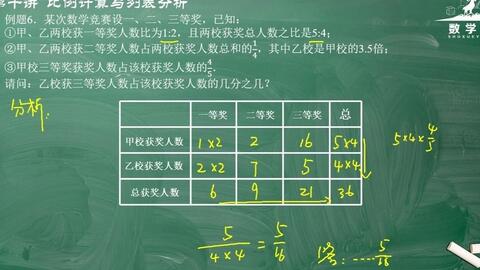 第十讲 比例计算与列表分析
例题6. 某次数学竞赛设一、二、三等奖,已知:
①甲、乙两校获一等奖人数比为1:2,且两校获奖总人数之比是5:4;
②甲、乙两校获二等奖人数占两校获奖人数总和的1/4,其中乙校是甲校的3.5倍;
③甲校三等奖获奖人数占该校获奖人数的4/5.
请问:乙校获三等奖人数占该校获奖人数的几分之几?
分析:
一等奖 二等奖 三等奖 总
甲校获奖人数 1×2 2 16 5×4
5×4×4/5
乙校获奖人数 2×2 7 5 4×4
总获奖人数 6 9 21 36
5/4×4=5/16
答:……5/16
数学
SHUXUEY